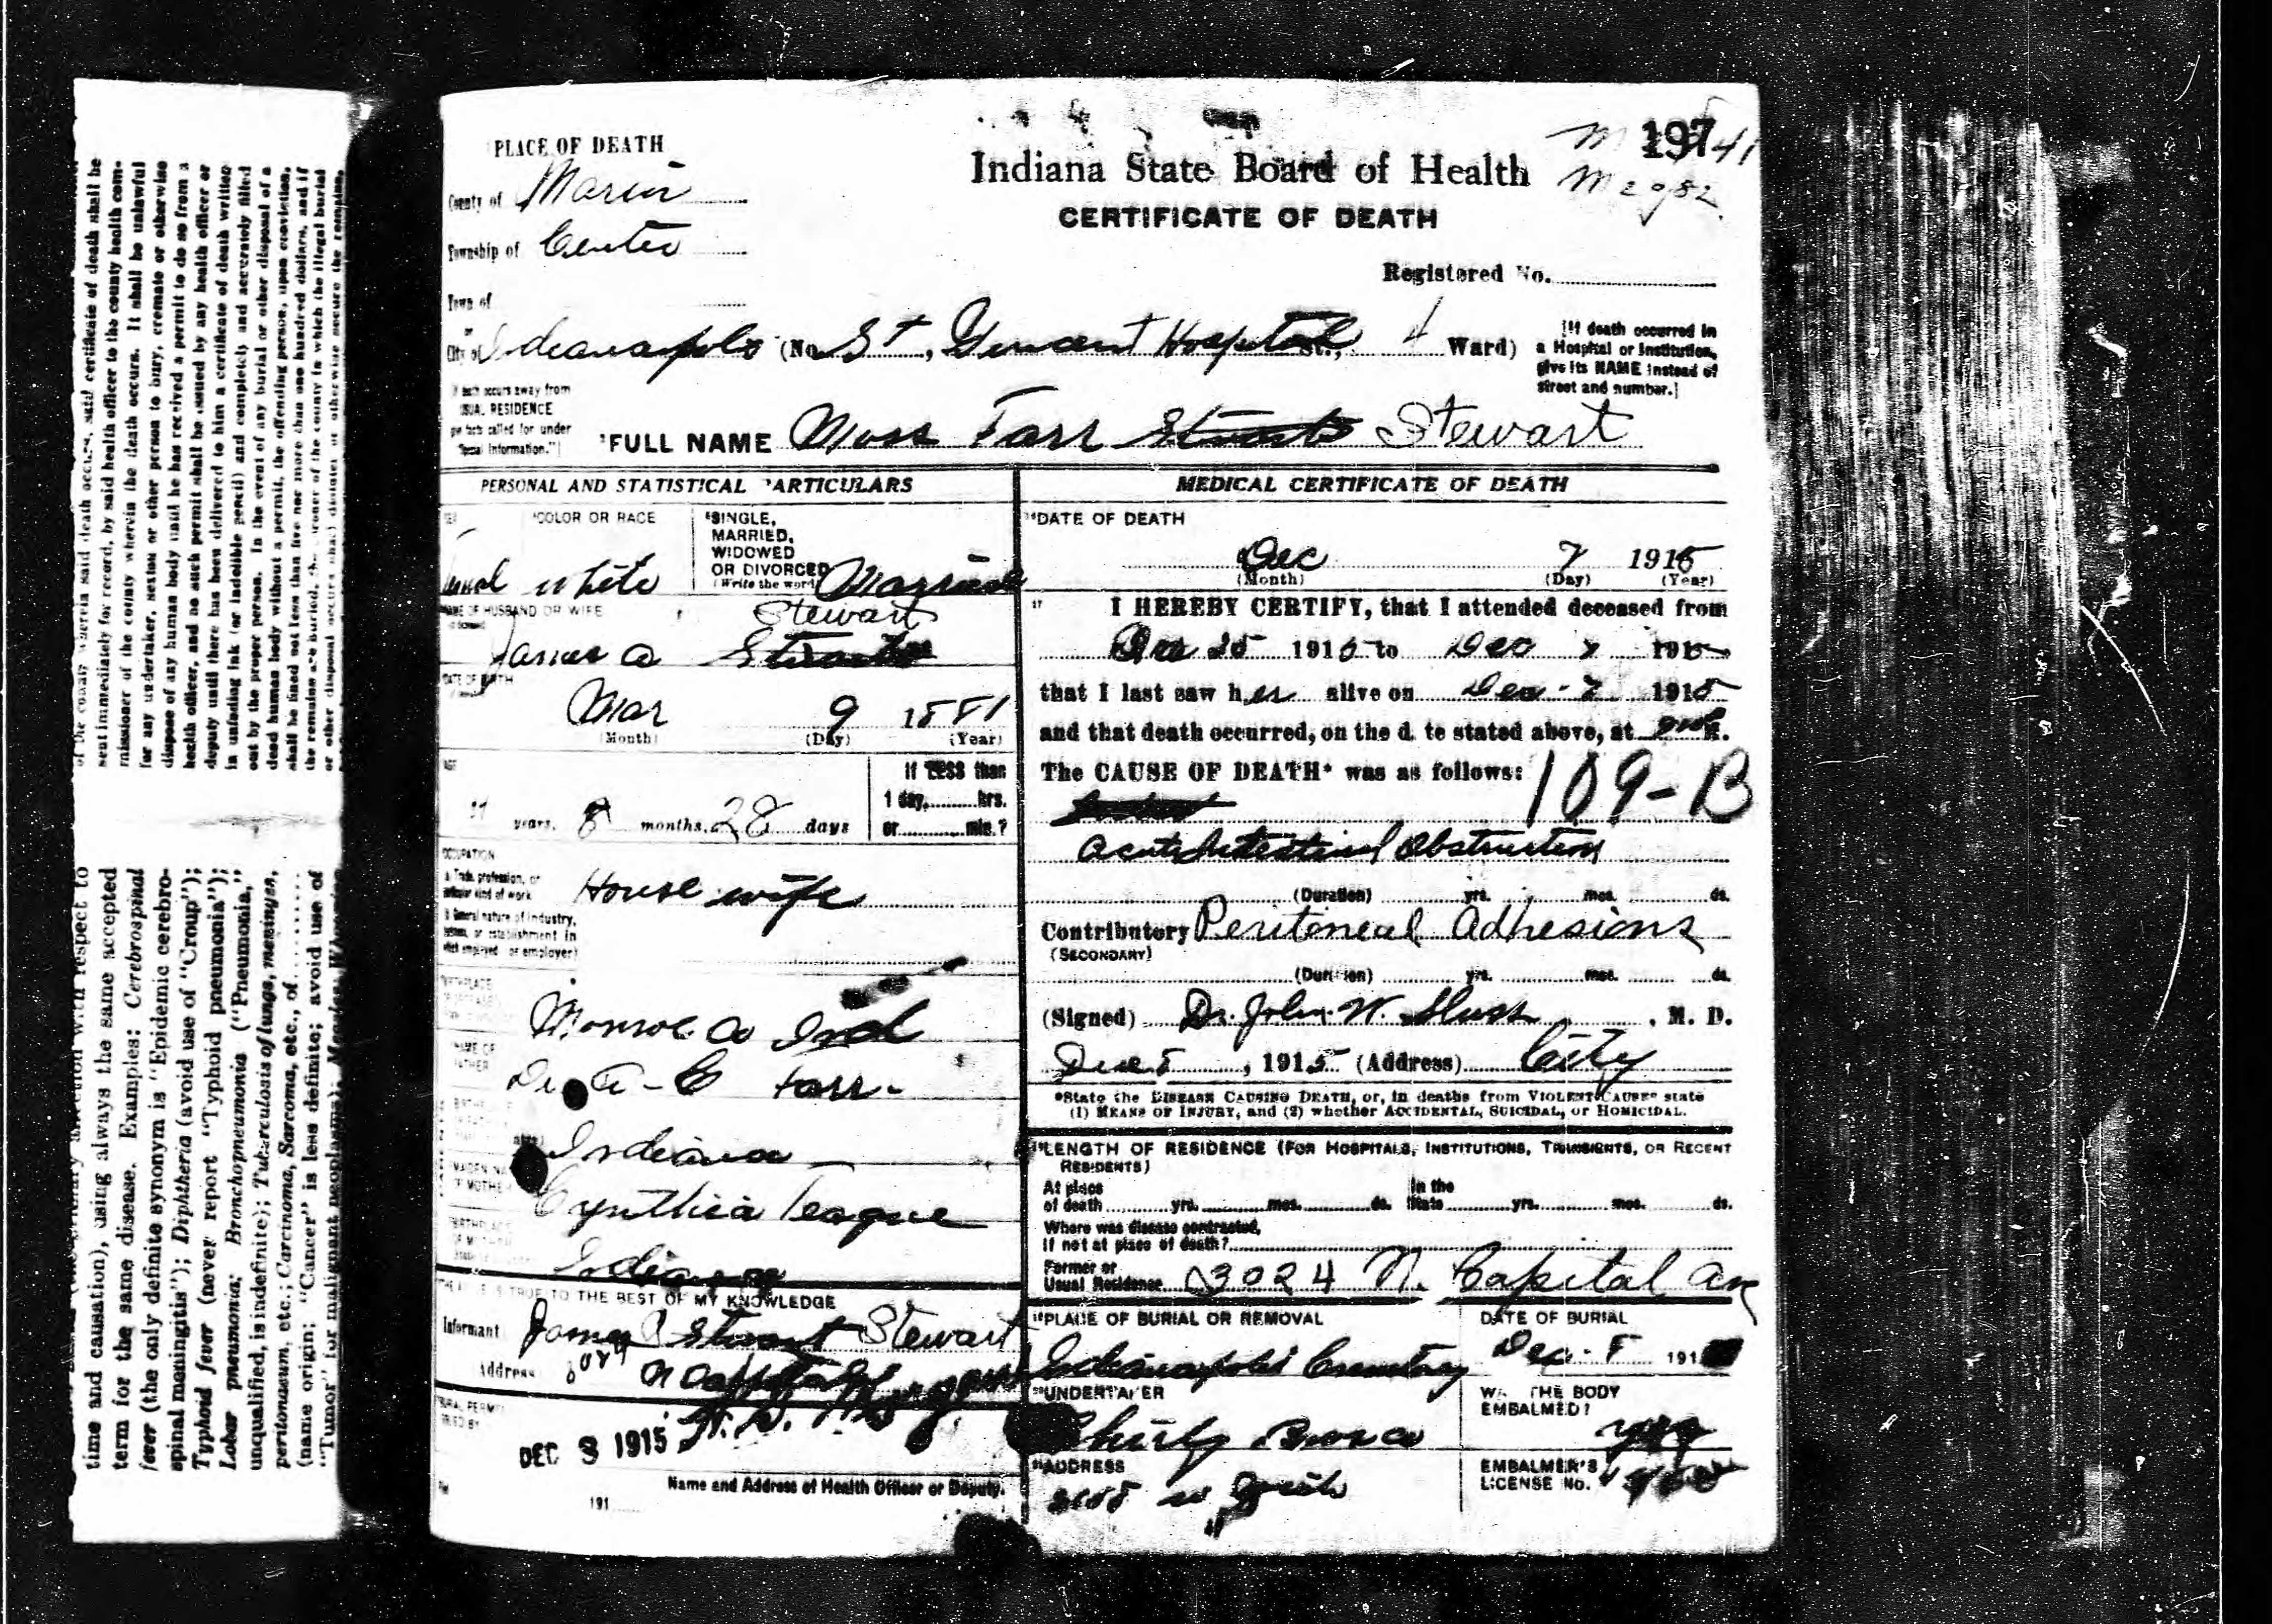 of the county wherein said death occurs, said certificate of death shall be
sent immediately for record, by said health officer to the county health com-
missioner of the county wherein the death occurs. It shall be unlawful
for any undertaker, sexton or other person to bury, cremate or otherwise
dispose of any human body until he has received a permit to do so from a
health officer, and no such permit shall be issued by any health officer or
deputy until there has been delivered to him a certificate of death written
in unfading ink (or indelible pencil) and completely and accurately filled
out by the proper person. In the event of any burial or other disposal of a
dead human body without a permit, the offending person, upon conviction,
shall be fined not less than five nor more than one hundred dollars, and if
the remains are buried, the coroner of the county in which the illegal burial
or other disposal occurs shall disinter or otherwise secure the remains,
respect to
time and causation), using always the same accepted
term for the same disease. Examples: Cerebrospinal
fever (the only definite synonym is "Epidemic cerebro-
spinal meningitis"); Diphtheria (avoid use of "Croup");
Typhoid fever (never report "Typhoid pneumonia");
Lobar pneumonia; Bronchopneumonia ("Pneumonia,"
unqualified, is indefinite); Tuberculosis of lungs, meninges,
peritonaeum, etc.; Carcinoma, Sarcoma, etc., of ..........
(name origin; "Cancer" is less definite; avoid use of
"Tumor" for malignant neoplasms);
PLACE OF DEATH
County of Marion
Township of Center
Town of
or
City of Indianapolis (No. St, Vincent Hospital St., 4 Ward)
[If death occurred in
a Hospital or Institution,
give its NAME instead of
street and number.]
197
M 2982
Indiana State Board of Health
CERTIFICATE OF DEATH
Registered No.
death occurs away from
USUAL RESIDENCE
give facts called for under
"Special Information."]
FULL NAME Moss Farr Stewart
PERSONAL AND STATISTICAL PARTICULARS
COLOR OR RACE
white
SINGLE,
MARRIED,
WIDOWED
OR DIVORCED
(Write the word) Married
NAME OF HUSBAND OR WIFE
James A Stewart
DATE OF BIRTH
Mar 9 1881
(Month) (Day) (Year)
AGE
years, 8 months, 28 days
If LESS than
1 day, hrs.
or min.?
OCCUPATION
a Trade, profession, or
particular kind of work
House wife
b General nature of industry,
business, or establishment in
which employed or employer)
Monroe Co Ind
NAME OF
FATHER
Farr
Indiana
MAIDEN NAME
OF MOTHER
Cynthia Teague
Indiana
TRUE TO THE BEST OF MY KNOWLEDGE
Informant James Stewart
Address N Capital
DEC 8 1915
Name and Address of Health Officer or Deputy.
191
MEDICAL CERTIFICATE OF DEATH
DATE OF DEATH
Dec 7 1915
(Month) (Day) (Year)
I HEREBY CERTIFY, that I attended deceased from
1915 to Dec 7 1915
that I last saw her alive on Dec - 7 1915
and that death occurred, on the date stated above, at M.
The CAUSE OF DEATH* was as follows:
109-B
Acute Intestinal Obstruction
(Duration) yrs. mos. ds.
Contributory Peritoneal Adhesions
(SECONDARY)
(Duration) yrs. mos. ds.
(Signed) Dr. John W. Sluss, M. D.
1915 (Address) City
*State the DISEASE CAUSING DEATH, or, in deaths from VIOLENT CAUSES state
(1) MEANS OF INJURY, and (2) whether ACCIDENTAL, SUICIDAL, or HOMICIDAL.
LENGTH OF RESIDENCE (FOR HOSPITALS, INSTITUTIONS, TRANSIENTS, OR RECENT
RESIDENTS)
At place
of death yrs. mos. ds.
In the
State yrs. mos. ds.
Where was disease contracted,
if not at place of death?
Former or
Usual Residence 3024 N. Capital Ave
PLACE OF BURIAL OR REMOVAL
Indianapolis
DATE OF BURIAL
Dec. 8 191
UNDERTAKER
Shirly Bros Co
WAS THE BODY
EMBALMED?
yes
ADDRESS
EMBALMER'S
LICENSE No.